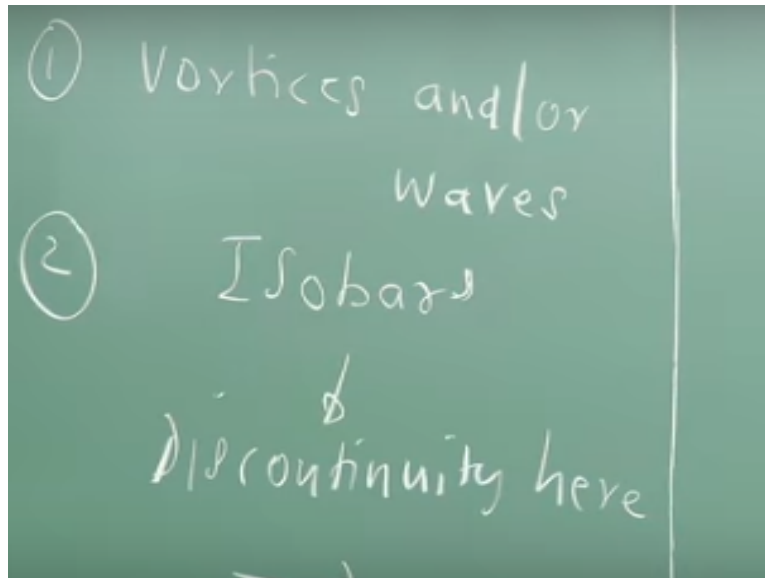 ① Vortices and/or
waves
② Isobars
↓
Discontinuity here